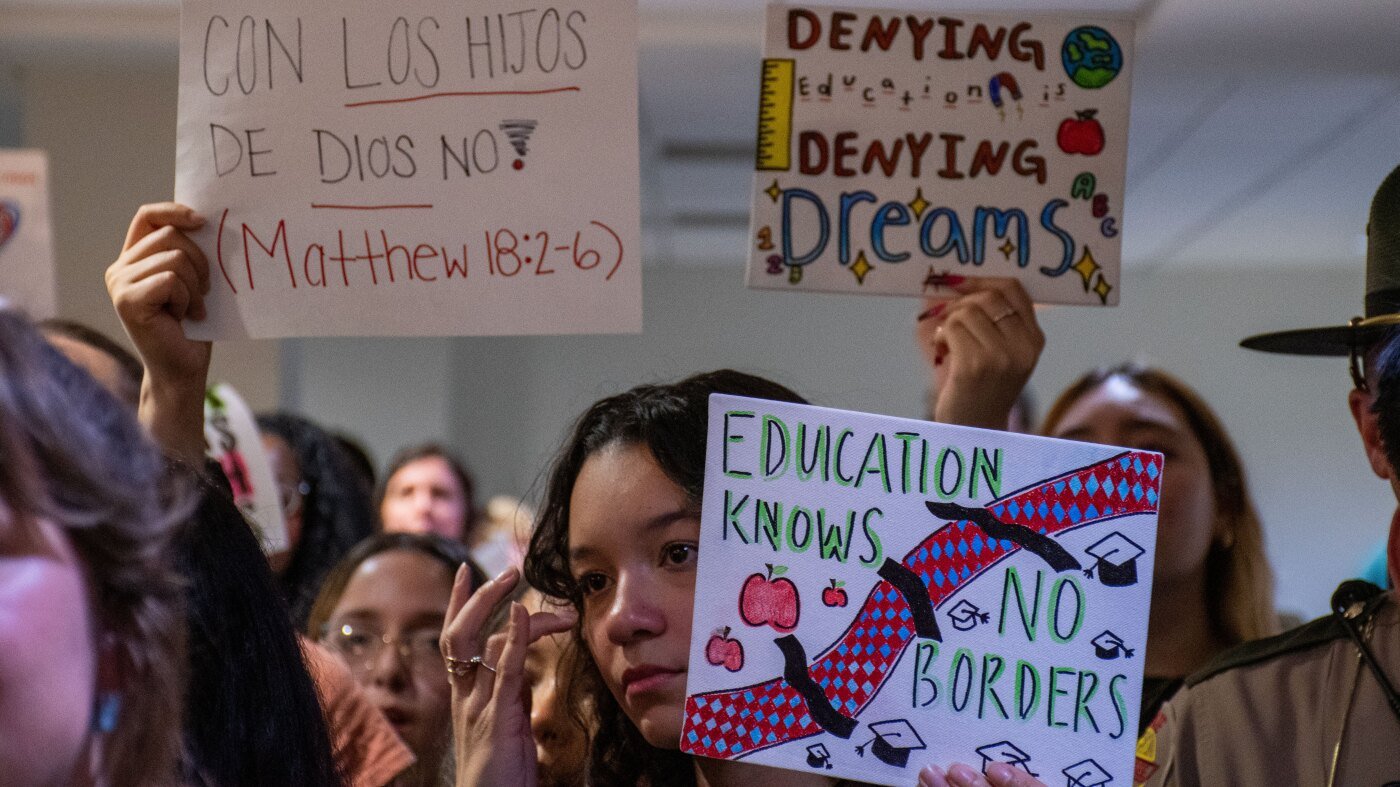 CON LOS HIJOS
DE DIOS NO!
(Matthew 18:2-6)
DENYING
Education is
DENYING
Dreams
ABC
123
EDUCATION
KNOWS
NO
BORDERS